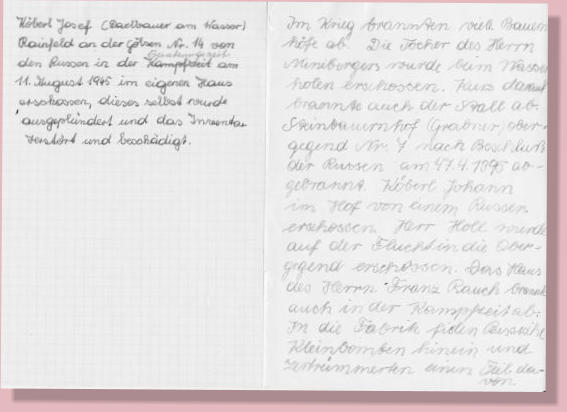 Köberl Josef (Daelbauer am Wasser)
Rainfeld an der Gölsen Nr. 14 von
den Russen in der Kampfzeit am
11. August 1945 im eigenen Haus
erschossen, dieses selbst wurde
ausgeplündert und das Inventar
zerstört und beschädigt.
Im Krieg brannten viele Bauern
höfe ab. Die Tochter des Herrn
wurde beim Wasser
holen erschossen. Kurz darauf
brannte auch der Stall ab.
Steinbauernhof (Grabner) ober-
gegend Nr. 7 nach Beschluß
der Russen am 17.4.1945 ab-
gebrannt. Köberl Johann
im Hof von einem Russen
erschossen. Herr Holl wurde
auf der Flucht in die Ober-
gegend erschossen. Das Haus
des Herrn Franz Rauch brannte
auch in der Kampfzeit ab.
In die Fabrik fielen Russische
Kleinbomben hinein und
zertrümmerten einen Teil da-
von